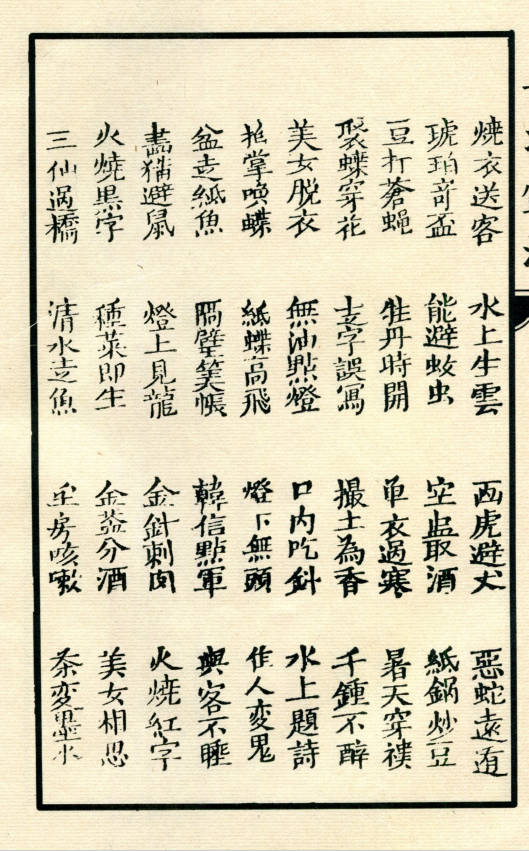 燒衣送客 水上生雲 画虎避犬 惡蛇遠遁
琥珀竒盃 能避蚊虫 空盅取酒 紙鍋炒豆
豆打蒼蝿 牡丹時開 单衣過寒 暑天穿襖
聚蝶穿花 玄字誤寫 撮土為香 千鍾不醉
美女脱衣 無油點燈 口内吃針 水上題詩
拍掌喚蝶 紙蝶高飛 燈下無頭 作人変鬼
盆走紙魚 隔壁筭帳 韓信點軍 與客不睡
畵猫避鼠 燈上見龍 金針刺肉 火燒紅字
火燒黒字 種菜即生 金盞分酒 美女相思
三仙過橋 清水走魚 空房咳嗽 茶変墨水